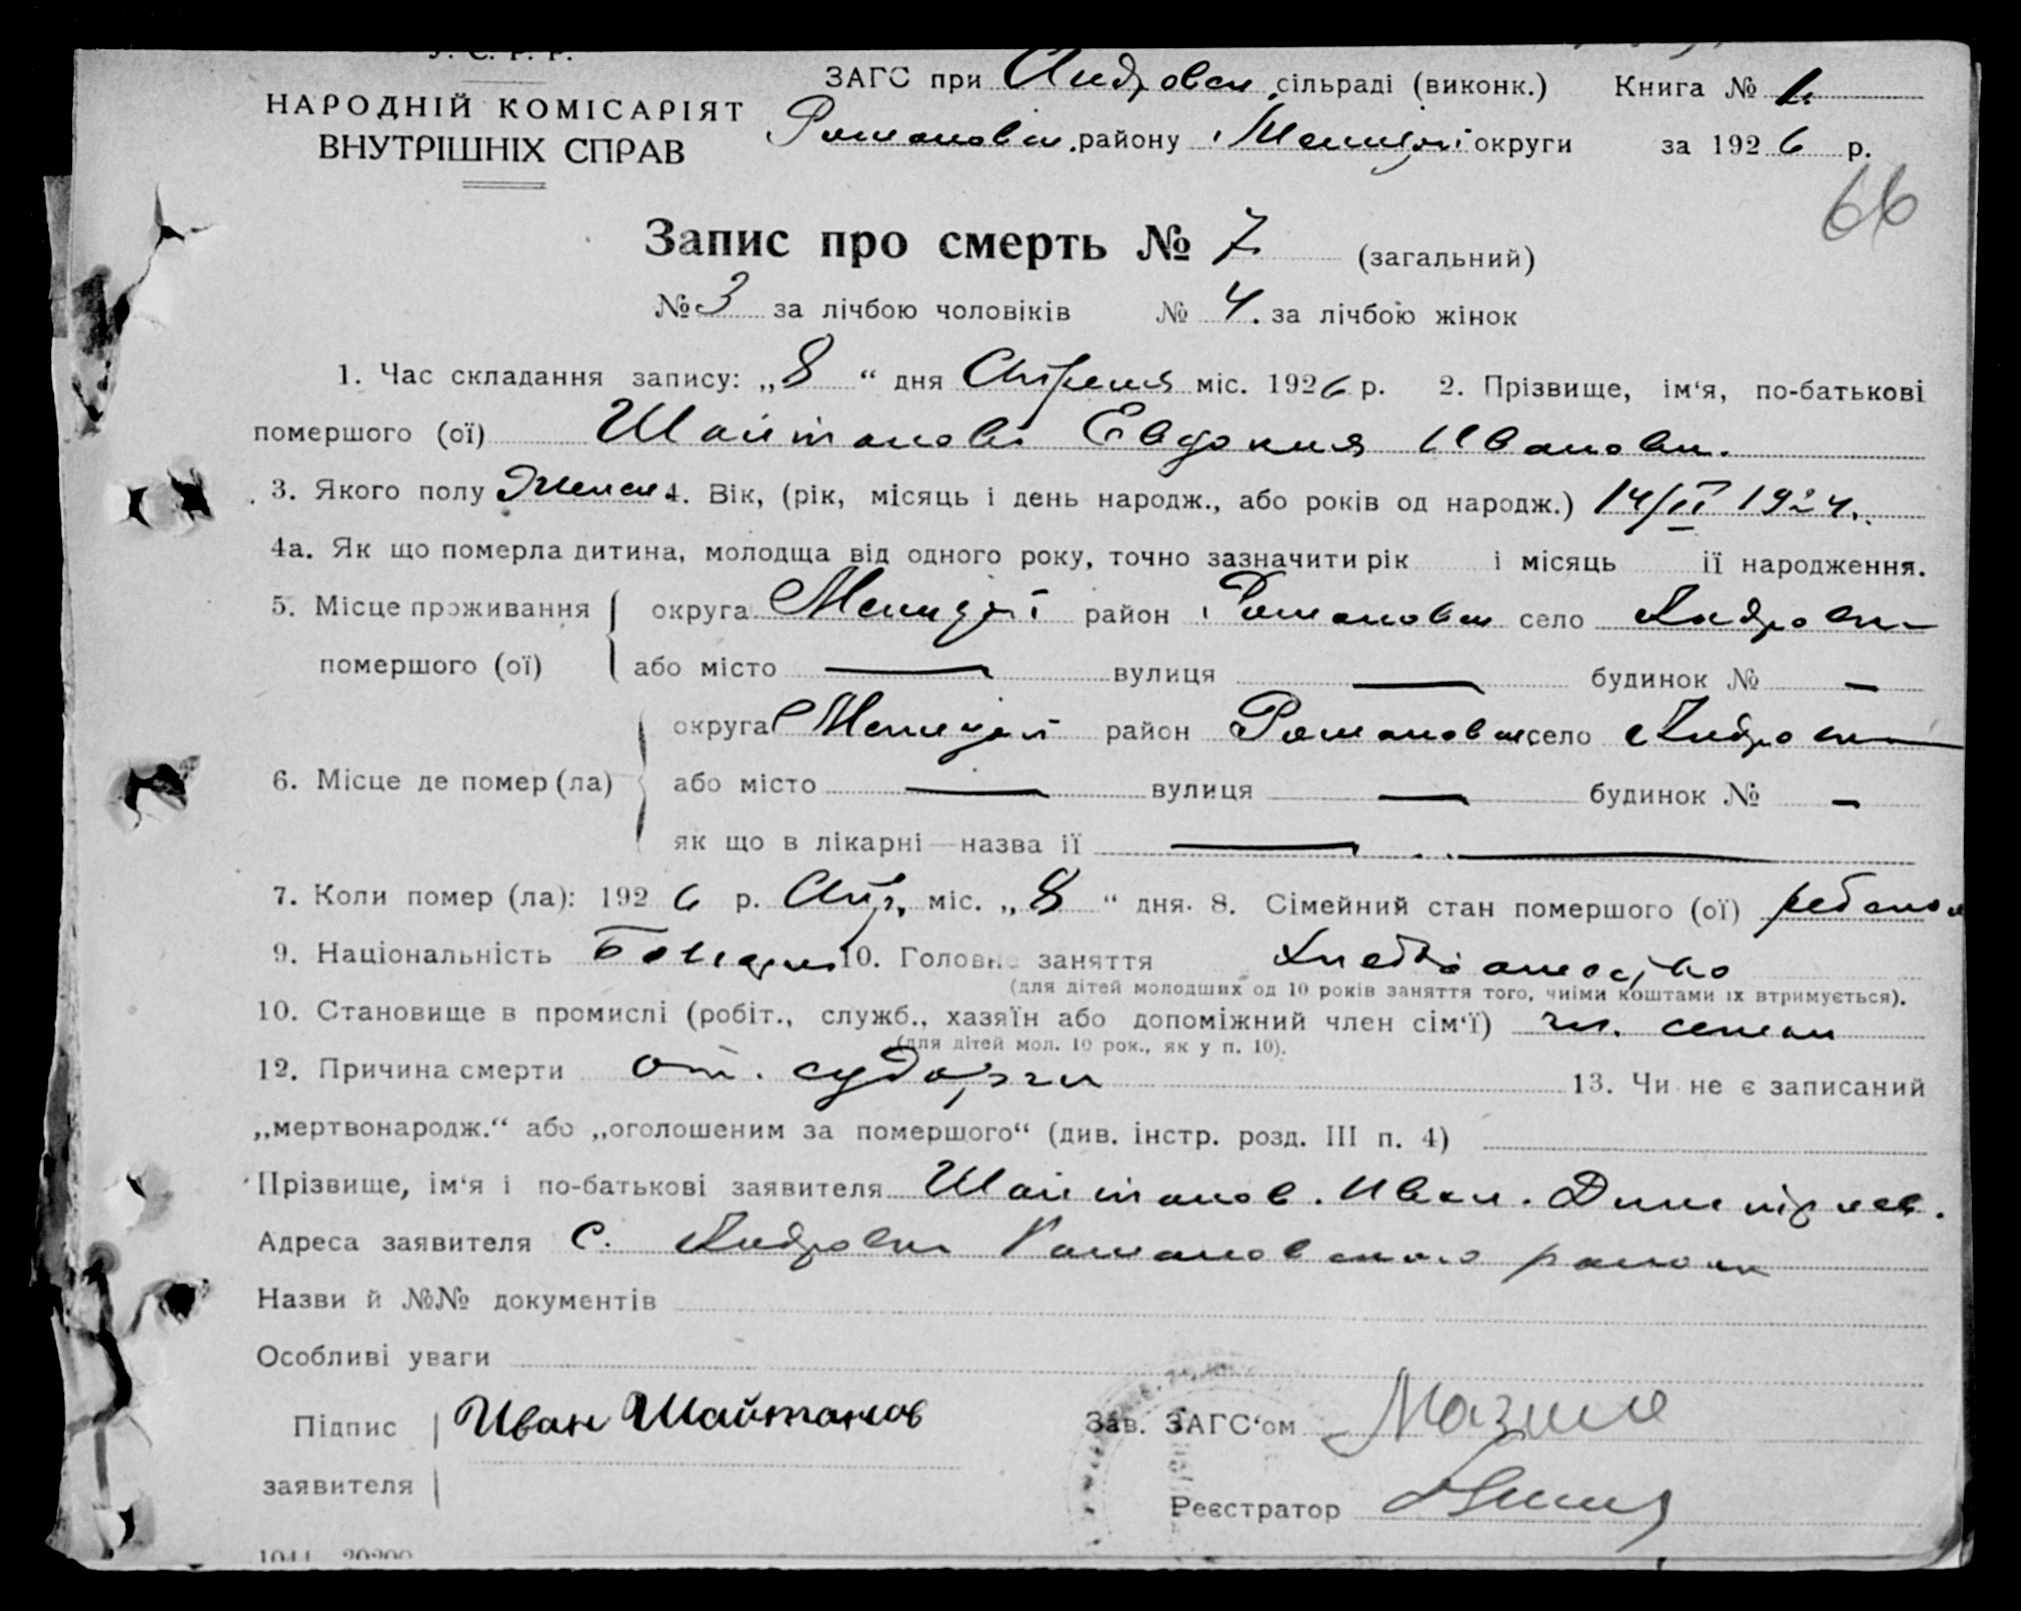 У. С. Р. Р.
НАРОДНІЙ КОМІСАРІЯТ
ВНУТРІШНІХ СПРАВ
ЗАГС при Андровск. сільраді (виконк.) Книга №
Романовск. району Меліт. округи за 1926 р.
66
Запис про смерть № 7 (загальний)
№ 3 за лічбою чоловіків № 4. за лічбою жінок
1. Час складання запису: „8“ дня Апреля міс. 1926 р. 2. Прізвище, ім‘я, по-батькові
помершого (ої) Шайтанова Евдокия Ивановн.
3. Якого полу Женск. 4. Вік, (рік, місяць і день народж., або років од народж.) 14/II 1924.
4а. Як що померла дитина, молодща від одного року, точно зазначити рік і місяць її народження.
5. Місце проживання округа район Романовск село Андровк
помершого (ої) або місто — вулиця — будинок № —
округа район Романовск село Андровк
6. Місце де помер (ла) або місто — вулиця — будинок № —
як що в лікарні—назва її —
7. Коли помер (ла): 1926 р. Апр. міс. „8“ дня. 8. Сімейний стан помершого (ої) ребенок
9. Національність Болгарк 10. Головне заняття
(для дітей молодших од 10 років заняття того, чиїми коштами їх втримується).
10. Становище в промислі (робіт., служб., хазяїн або допоміжний член сім‘ї) чл. семьи
(для дітей мол. 10 рок., як у п. 10).
12. Причина смерти от. судорги 13. Чи не є записаний
„мертвонародж.“ або „оголошеним за помершого“ (див. інстр. розд. III п. 4)
Прізвище, ім‘я і по-батькові заявителя Шайтанов. Иван. Дмитриев.
Адреса заявителя с. Андровк Романовского района
Назви й №№ документів
Особливі уваги
Підпис Иван Шайтанов Зав. ЗАГС‘ом
заявителя Реєстратор